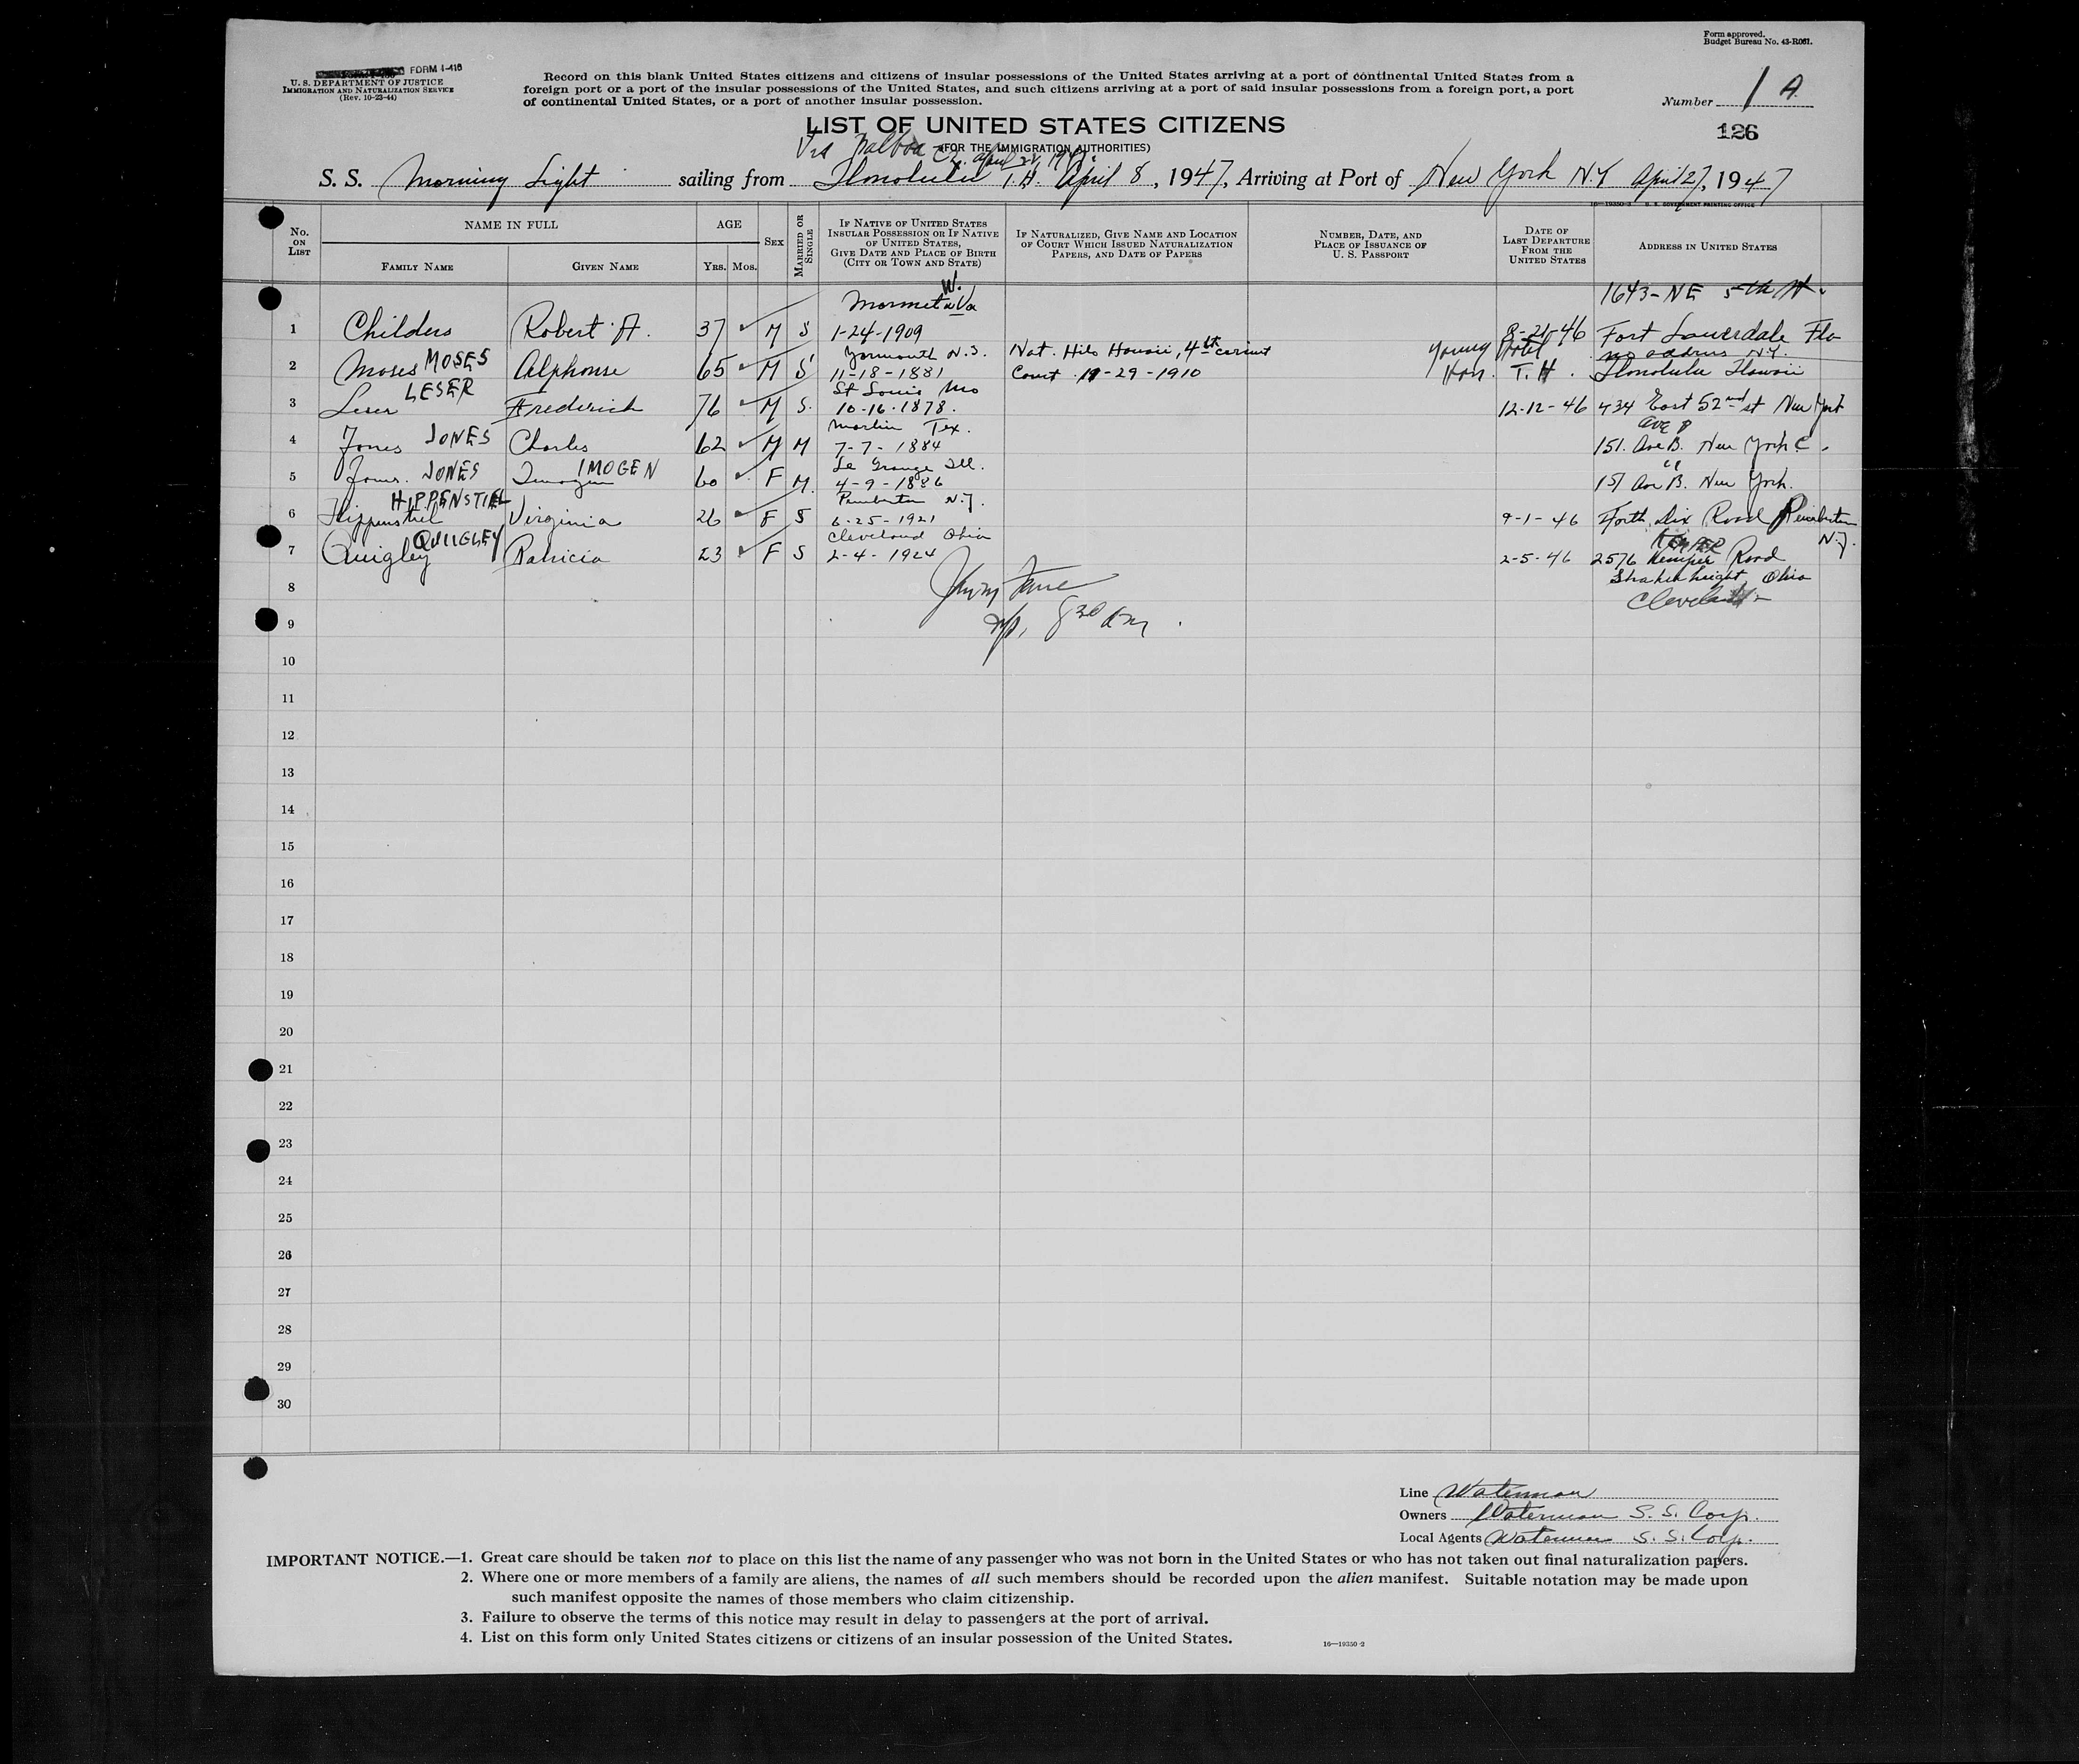 Form approved.
Budget Bureau No. 43-R061.
FORM I-416
U. S. DEPARTMENT OF JUSTICE
IMMIGRATION AND NATURALIZATION SERVICE
(Rev. 10-23-44)
Record on this blank United States citizens and citizens of insular possessions of the United States arriving at a port of continental United States from a
foreign port or a port of the insular possessions of the United States, and such citizens arriving at a port of said insular possessions from a foreign port, a port
of continental United States, or a port of another insular possession.
Number 1 A
126
LIST OF UNITED STATES CITIZENS
(FOR THE IMMIGRATION AUTHORITIES)
Via Balboa CZ. April 22, 1947.
S. S. Morning Light sailing from Honolulu T.H. April 8, 1947, Arriving at Port of New York N.Y April 27, 1947
16—19350-2 U. S. GOVERNMENT PRINTING OFFICE
No. on List
NAME IN FULL
FAMILY NAME
GIVEN NAME
AGE
YRS. MOS.
SEX
MARRIED OR SINGLE
IF NATIVE OF UNITED STATES INSULAR POSSESSION OR IF NATIVE OF UNITED STATES, GIVE DATE AND PLACE OF BIRTH (CITY OR TOWN AND STATE)
IF NATURALIZED, GIVE NAME AND LOCATION OF COURT WHICH ISSUED NATURALIZATION PAPERS, AND DATE OF PAPERS
NUMBER, DATE, AND PLACE OF ISSUANCE OF U. S. PASSPORT
DATE OF LAST DEPARTURE FROM THE UNITED STATES
ADDRESS IN UNITED STATES
W. Va 1643-NE 5th
1 Childers Robert A. 37 M S 1-24-1909 8-21-46 Fort Lauderdale Fla
Yarmouth N.S. Nat. Hilo Hawaii, 4th circuit Young Hotel no address N.Y.
2 Moses MOSES Alphonse 65 M S 11-18-1881 Court 11-29-1910 Hon. T.H. Honolulu Hawaii
LESER St Louis Mo
3 Leser Frederick 76 M S. 10-16-1878. 12-12-46 434 East 52nd st New York
Marlin Tex. Ave B
4 Jones JONES Charles 62 M M 7-7-1884 151. Ave B. New York C.
La Grange Ill. "
5 Jones. JONES Imogen IMOGEN 60 F M. 4-9-1886 151 Ave B. New York.
HIPPENSTIEL Pemberton N.J.
6 Hippenstiel Virginia 26 F S 6-25-1921 9-1-46 Forth Dix Road Pemberton N.J.
QUIGLEY Cleveland Ohio KEMPER
7 Quigley Patricia 23 F S 2-4-1924 2-5-46 2576 Kemper Road
Shaker height, Ohio
8
Cleveland
9
8 30 am.
10
11
12
13
14
15
16
17
18
19
20
21
22
23
24
25
26
27
28
29
30
Line Waterman
Owners Waterman S. S. Corp.
Local Agents Waterman S. S. Corp.
IMPORTANT NOTICE.—1. Great care should be taken not to place on this list the name of any passenger who was not born in the United States or who has not taken out final naturalization papers.
2. Where one or more members of a family are aliens, the names of all such members should be recorded upon the alien manifest. Suitable notation may be made upon
such manifest opposite the names of those members who claim citizenship.
3. Failure to observe the terms of this notice may result in delay to passengers at the port of arrival.
4. List on this form only United States citizens or citizens of an insular possession of the United States.
16—19350-2